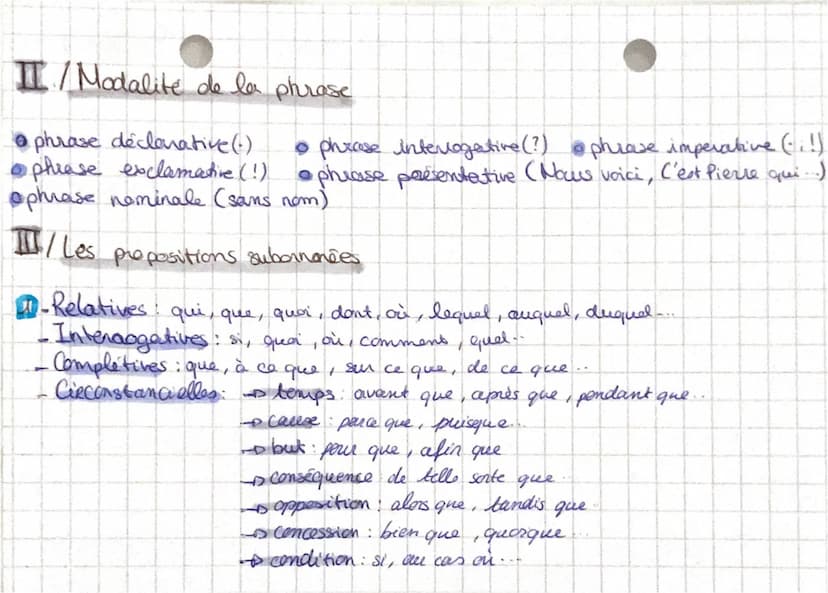 II / Modalité de la phrase
• phrase déclarative (.) • phrase interrogative (?) • phrase impérative (. ; !)
• phrase exclamative (!) • phrase présentative (Nous voici, C'est Pierre qui...)
• phrase nominale (sans nom)
III / Les propositions subonnorées
1 - Relatives : qui, que, quoi, dont, où, lequel, auquel, duquel...
- Interrogatives : si, quoi, où, comment, quel..
- Complétives : que, à ce que, sur ce que, de ce que...
- Circonstancielles : → temps : avant que, après que, pendant que..
→ cause : parce que, puisque...
→ but : pour que, afin que
→ conséquence de telle sorte que...
→ opposition : alors que, tandis que
→ concession : bien que, quoique...
→ condition : si, au cas où...